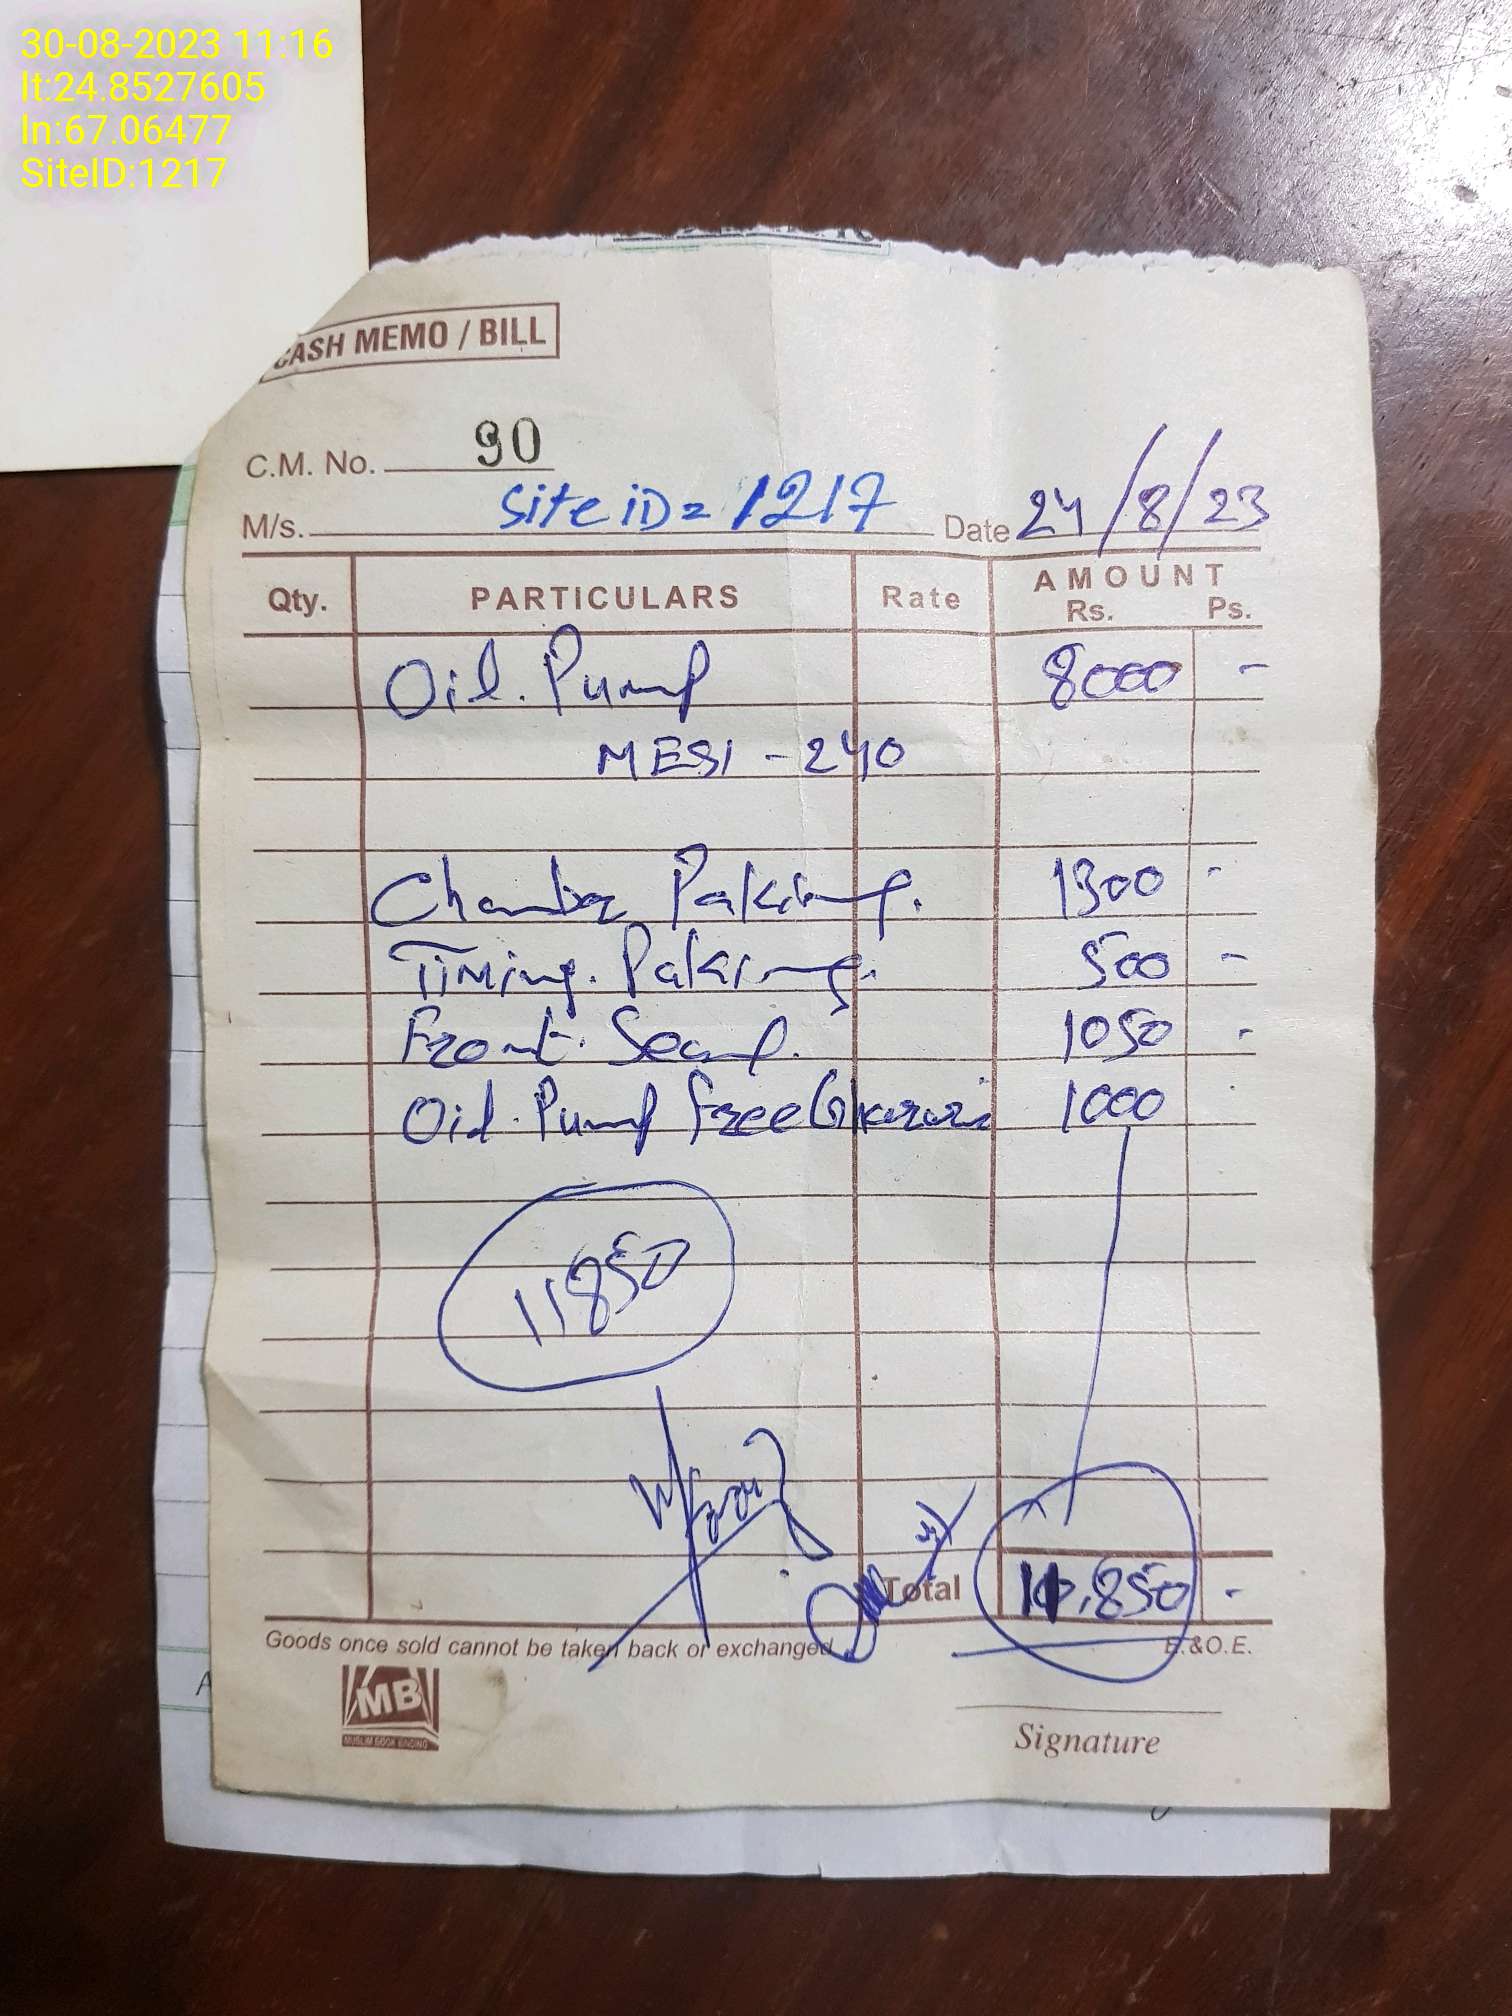 30-08-2023 11:16
lt:24.8527605
ln:67.06477
SiteID:1217
CASH MEMO / BILL
C.M. No. 90
M/s. Site iD= 1217 Date 24/8/23
Qty. PARTICULARS Rate AMOUNT
Rs. Ps.
Oil. Pump 8000 -
MESI - 240
Paking. 1300 -
Timing. Paking. 500 -
Front. 1050 -
Oil. Pump Free 1000
11850
Total 11,850 -
Goods once sold cannot be taken back or exchanged E.&O.E.
MB
MUSLIM BOOK BINDING
Signature